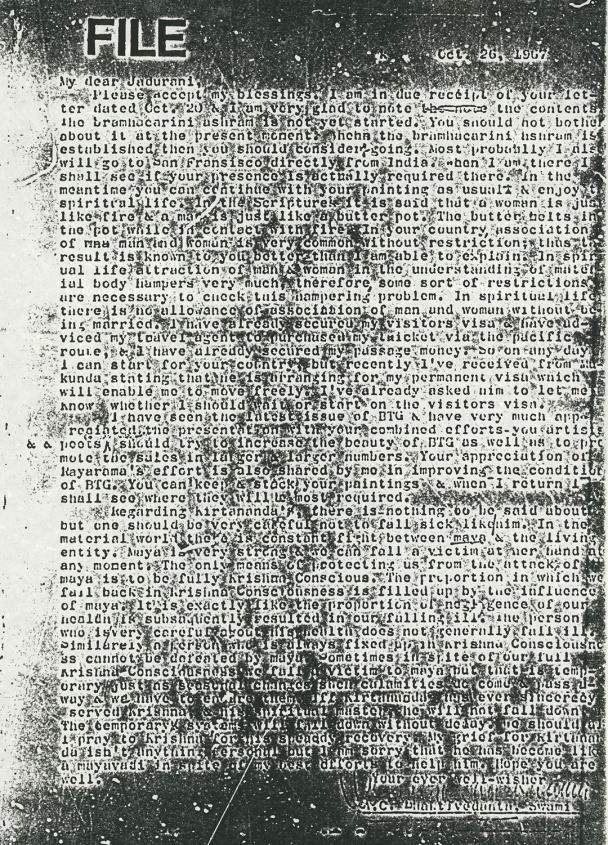 FILE
Oct. 26, 1967
My dear Jadurani,
Please accept my blessings. I am in due receipt of your let-
ter dated Oct. 20 & I am very glad to note the contents
The bramhacarini ashram is not yet started. You should not bothe
about it at the present moment. When the bramhacarini ashram is
established then you should consider going. Most probably I als
will go to San Fransisco directly from India. When I am there I
shall see if your presence is actually required there. In the
meantime you can continue with your painting as usual & enjoy
spiritual life. In the Scriptures it is said that a woman is jus
like fire & a man is just like a butter pot. The butter melts in
the pot while in contact with fire. In your country, association
of man and woman is very common without restriction; thus
result is known to you better than I am able to explain. In spir
ual life attraction of man & woman in the understanding of mater
ial body hampers very much, therefore, some sort of restrictions
are necessary to check this hampering problem. In spiritual life
there is no allowance of association of man and woman without be
ing married. I have already secured my visitors visa & have ad-
viced my travel agent to purchase my ticket via the pacific
route, & I have already secured my passage money. So on any day
I can start for your country but recently I've received from Mu
kunda stating that he is arranging for my permanent visa which
will enable me to move freely. I've already asked him to let me
know whether I should wait or start on the visitors visa.
I have seen the latest issue of BTG & have very much app
the presentation with your combined efforts- you artis
& & poets should try to increase the beauty of BTG as well as to pro
mote the sales in larger & larger numbers. Your appreciation of
Rayarama's effort is also shared by me in improving the conditio
of BTG. You can keep & stock your paintings & when I return I
shall see where they will be most required.
Regarding Kirtananda's there is nothing to be said about
but one should be very careful not to fall sick like him. In the
material world there is constant fight between maya & the living
entity. Maya is very strong & we can fall a victim at her hand at
any moment. The only means of protecting us from the attack of
maya is to be fully Krishna Conscious. The proportion in which we
fall back in Krishna Consciousness is filled up by the influence
of maya. It is exactly like the proportion of negligence of our
health is subsequently resulted in our falling ill. The person
who is very careful about his health does not generally fall ill
Similarly a person who is always fixed up in Krishna Consciousne
ss cannot be defeated by maya. Sometimes in spite of our full
Krishna Consciousness we fall victim to maya but that is temp-
orary just as seasonal changes sometimes come & pass
way & we have to them. If Kirtananda has ever sincere
served Krishna & master he will not fall down.
The temporary will without delay. We should al
pray to Krishna for his steady recovery. My grief for Kirtan
da isn't anything personal but I am sorry that he has become like
a mayavadi in spite of my best efforts to help him. Hope you are
well.
Your ever well-wisher
A.C. Bhaktivedanta Swami